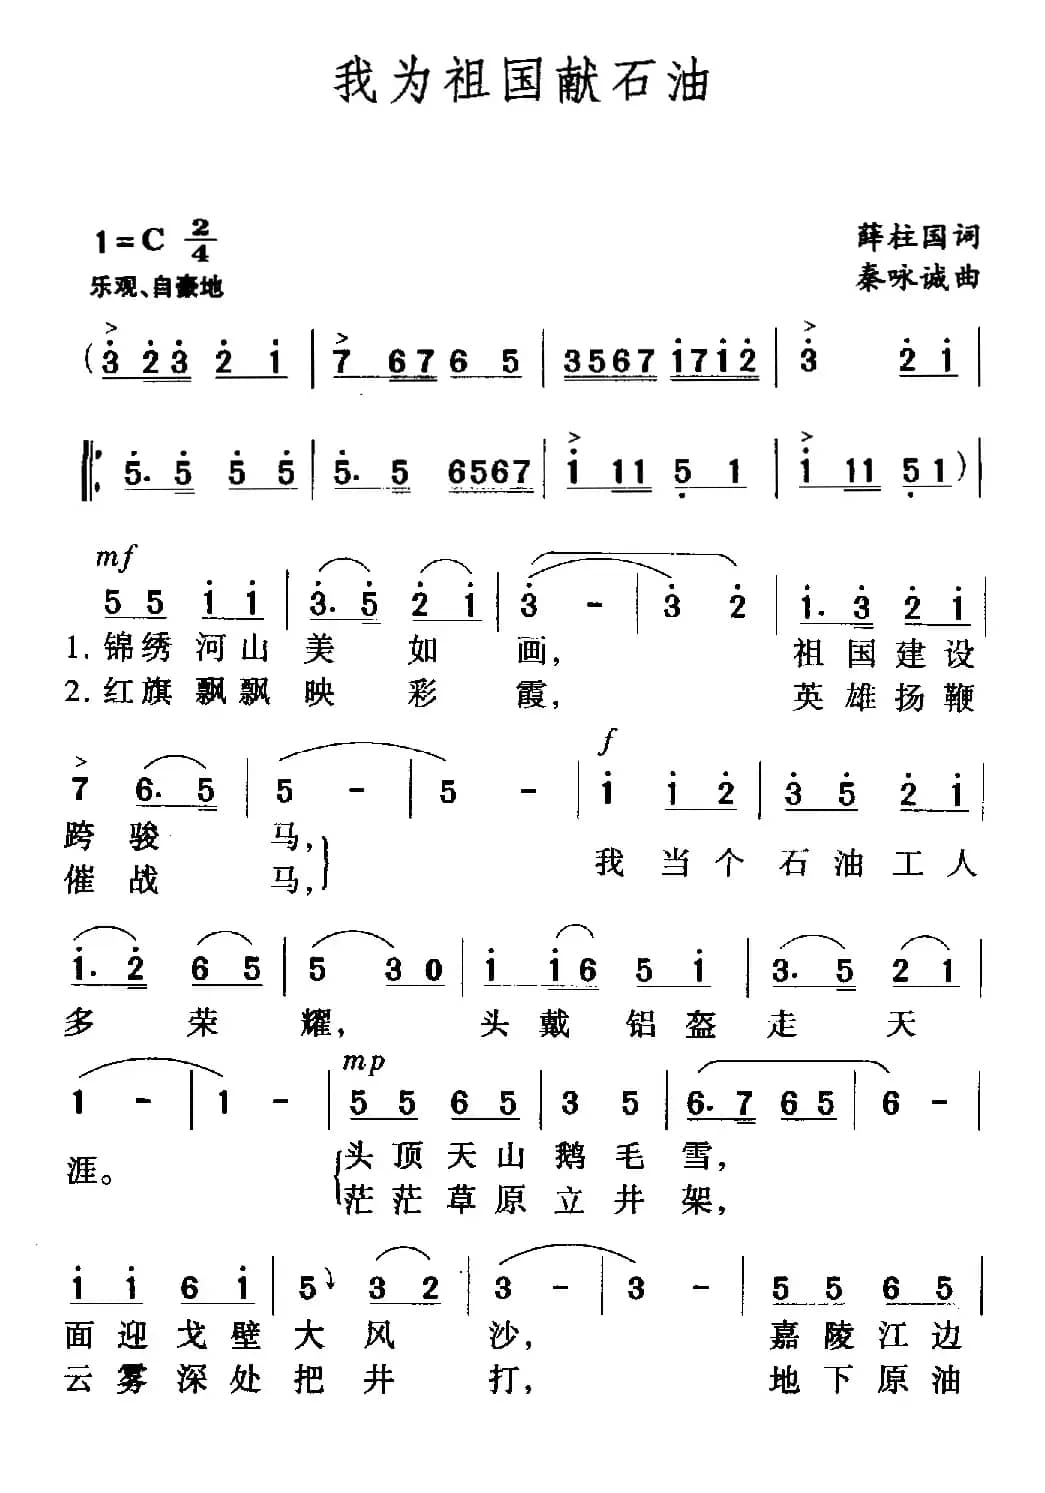 我为祖国献石油
1=C 2/4
薛柱国词
乐观、自豪地
秦咏诚曲
(3 2 3 2 1 | 7 6 7 6 5 | 3 5 6 7 1 7 1 2 | 3 2 1 |
5. 5 5 5 | 5. 5 6 5 6 7 | 1 1 1 5 1 | 1 1 1 5 1 ) |
mf
5 5 1 1 | 3. 5 2 1 | 3 - | 3 2 | 1. 3 2 1 |
1. 锦绣 河山 美 如 画， 祖国建设
2. 红旗 飘飘 映 彩 霞， 英雄扬鞭
f
7 6. 5 | 5 - | 5 - | 1 1 2 | 3 5 2 1 |
跨 骏 马，
我 当 个 石 油 工 人
催 战 马，
1. 2 6 5 | 5 3 0 | 1 1 6 5 1 | 3. 5 2 1 |
多 荣 耀， 头 戴 铝 盔 走 天
mp
1 - | 1 - | 5 5 6 5 | 3 5 | 6. 7 6 5 | 6 - |
涯。 头 顶 天 山 鹅 毛 雪，
茫 茫 草 原 立 井 架，
1 1 6 1 | 5 3 2 | 3 - | 3 - | 5 5 6 5 |
面 迎 戈 壁 大 风 沙， 嘉 陵 江 边
云 雾 深 处 把 井 打， 地 下 原 油